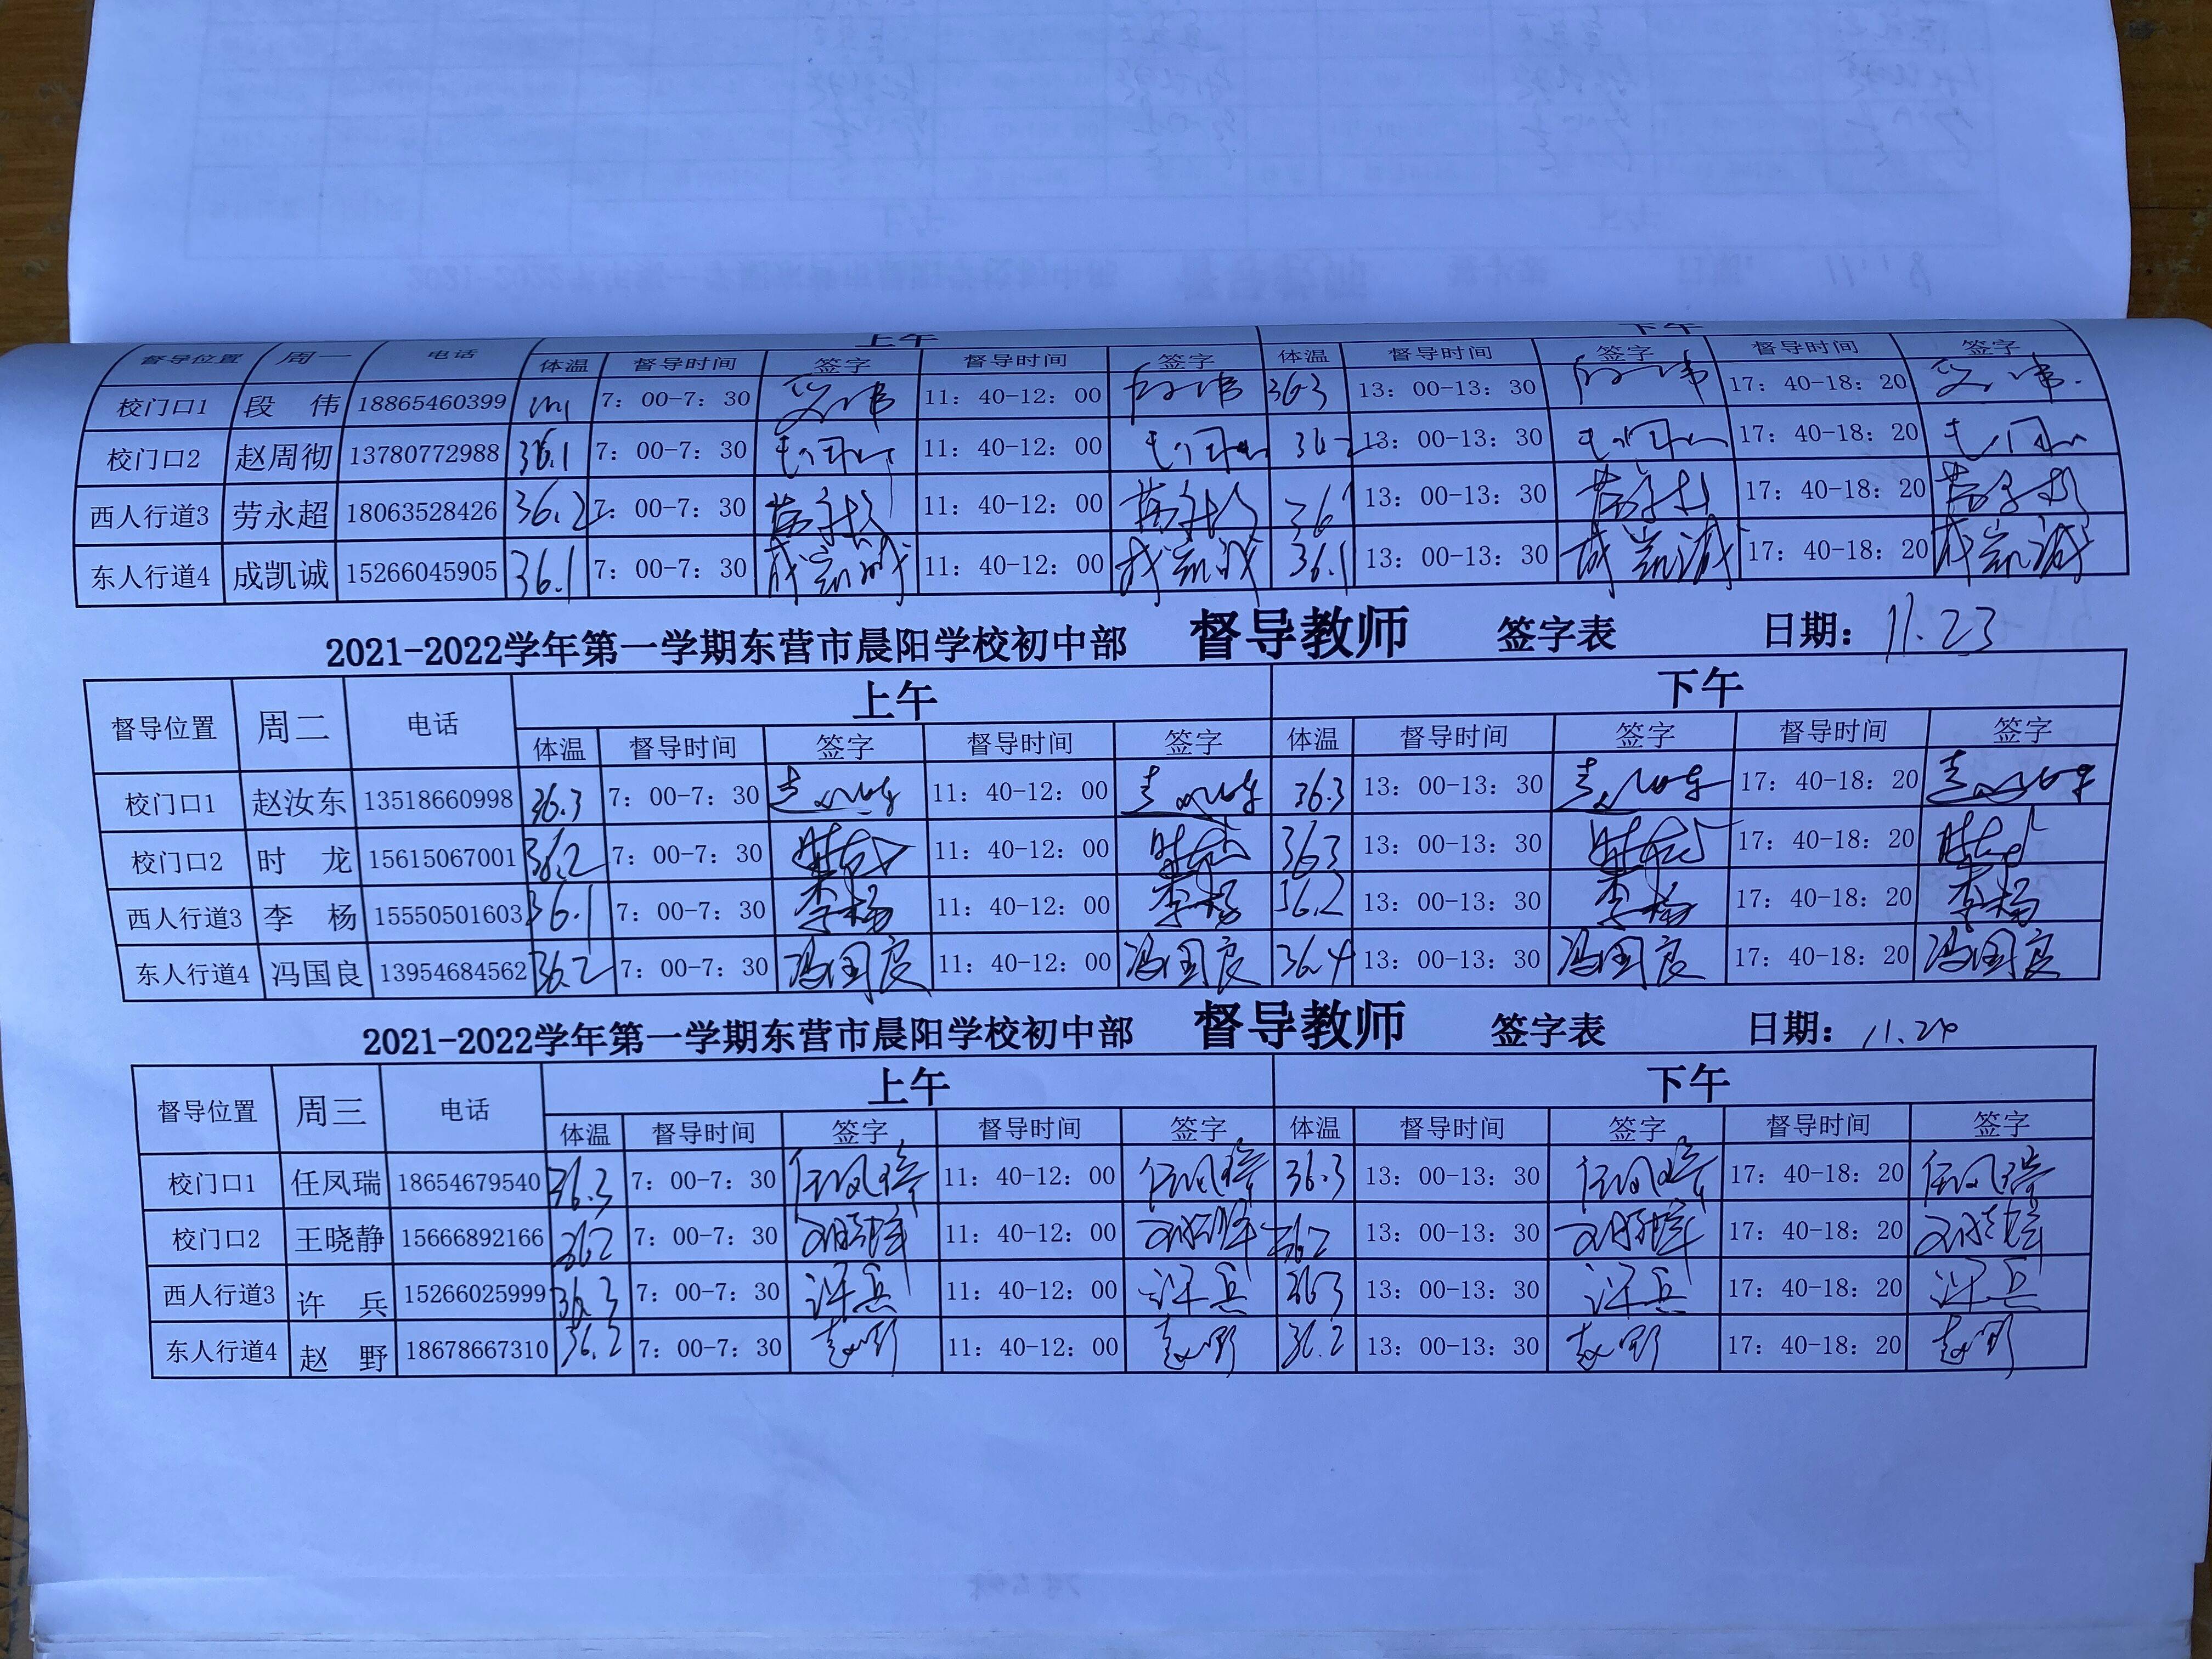 上午 下午
督导位置 周一 电话 体温 督导时间 签字 督导时间 签字 体温 督导时间 签字 督导时间 签字
校门口1 段 伟 18865460399 7：00-7：30 11：40-12：00 36.3 13：00-13：30 17：40-18：20
校门口2 赵周彻 13780772988 36.1 7：00-7：30 11：40-12：00 13：00-13：30 17：40-18：20
西人行道3 劳永超 18063528426 36.2 7：00-7：30 劳永超 11：40-12：00 劳永超 36.1 13：00-13：30 劳永超 17：40-18：20 劳永超
东人行道4 成凯诚 15266045905 36.1 7：00-7：30 成凯诚 11：40-12：00 成凯诚 36.1 13：00-13：30 成凯诚 17：40-18：20 成凯诚
2021-2022学年第一学期东营市晨阳学校初中部 督导教师 签字表 日期：11.23
督导位置 周二 电话 上午 下午
体温 督导时间 签字 督导时间 签字 体温 督导时间 签字 督导时间 签字
校门口1 赵汝东 13518660998 36.3 7：00-7：30 赵汝东 11：40-12：00 赵汝东 36.3 13：00-13：30 赵汝东 17：40-18：20 赵汝东
校门口2 时 龙 15615067001 36.2 7：00-7：30 时龙 11：40-12：00 时龙 363 13：00-13：30 时龙 17：40-18：20 时龙
西人行道3 李 杨 15550501603 36.1 7：00-7：30 李杨 11：40-12：00 李杨 36.2 13：00-13：30 李杨 17：40-18：20 李杨
东人行道4 冯国良 13954684562 36.2 7：00-7：30 冯国良 11：40-12：00 冯国良 36.4 13：00-13：30 冯国良 17：40-18：20 冯国良
2021-2022学年第一学期东营市晨阳学校初中部 督导教师 签字表 日期：11.24
督导位置 周三 电话 上午 下午
体温 督导时间 签字 督导时间 签字 体温 督导时间 签字 督导时间 签字
校门口1 任凤瑞 18654679540 36.3 7：00-7：30 任凤瑞 11：40-12：00 任凤瑞 36.3 13：00-13：30 任凤瑞 17：40-18：20 任凤瑞
校门口2 王晓静 15666892166 36.2 7：00-7：30 11：40-12：00 36.2 13：00-13：30 17：40-18：20
西人行道3 许 兵 15266025999 36.3 7：00-7：30 许兵 11：40-12：00 许兵 36.3 13：00-13：30 许兵 17：40-18：20 许兵
东人行道4 赵 野 18678667310 36.2 7：00-7：30 赵野 11：40-12：00 赵野 36.2 13：00-13：30 赵野 17：40-18：20 赵野